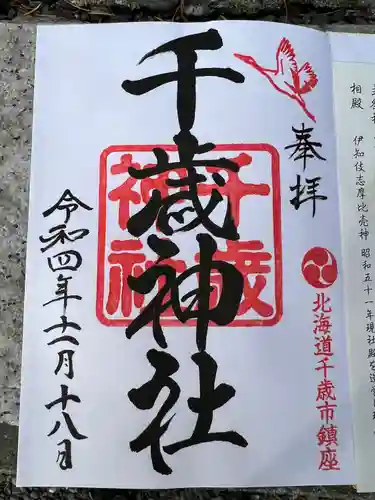 奉拝
北海道千歳市鎮座
千歳神社
千歳
神社
令和四年十一月十八日
相殿 伊知伎志摩比売神
昭和五十一年現社殿を造営